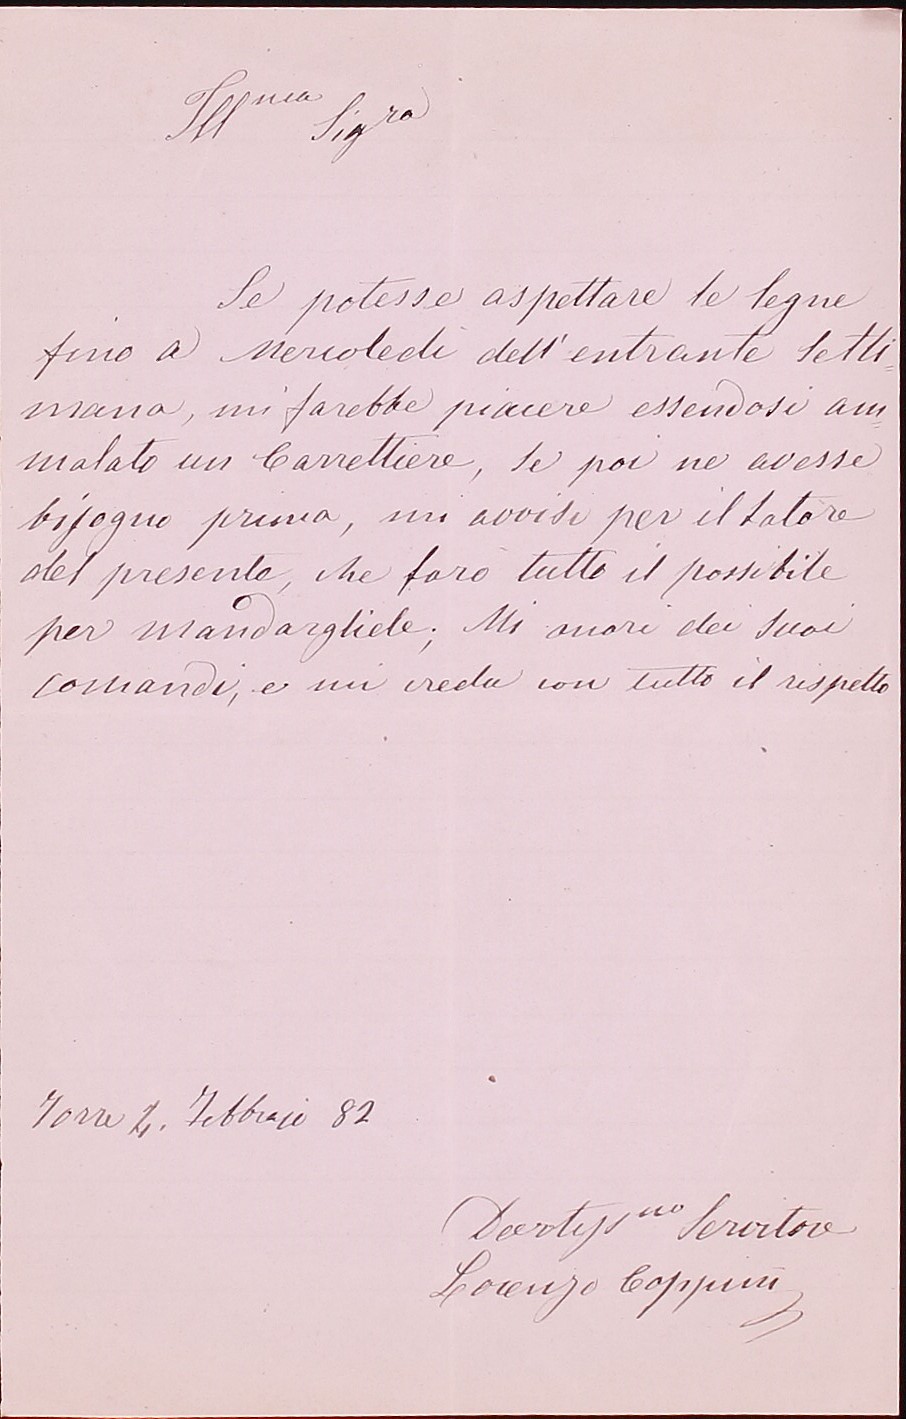 Ill.ma Sig.ra
Se potesse aspettare le legne
fino a Mercoledi dell'entrante Setti=
mana, mi farebbe piacere essendosi am=
malato un Carrettiere, se poi ne avesse
bisogno prima, mi avvisi per il latore
del presente, che farò tutto il possibile
per mandargliele; Mi onori dei suoi
comandi, e mi creda con tutto il rispetto
Torre 4. Febbraio 82
Devotiss.mo Servitore
Lorenzo Coppini